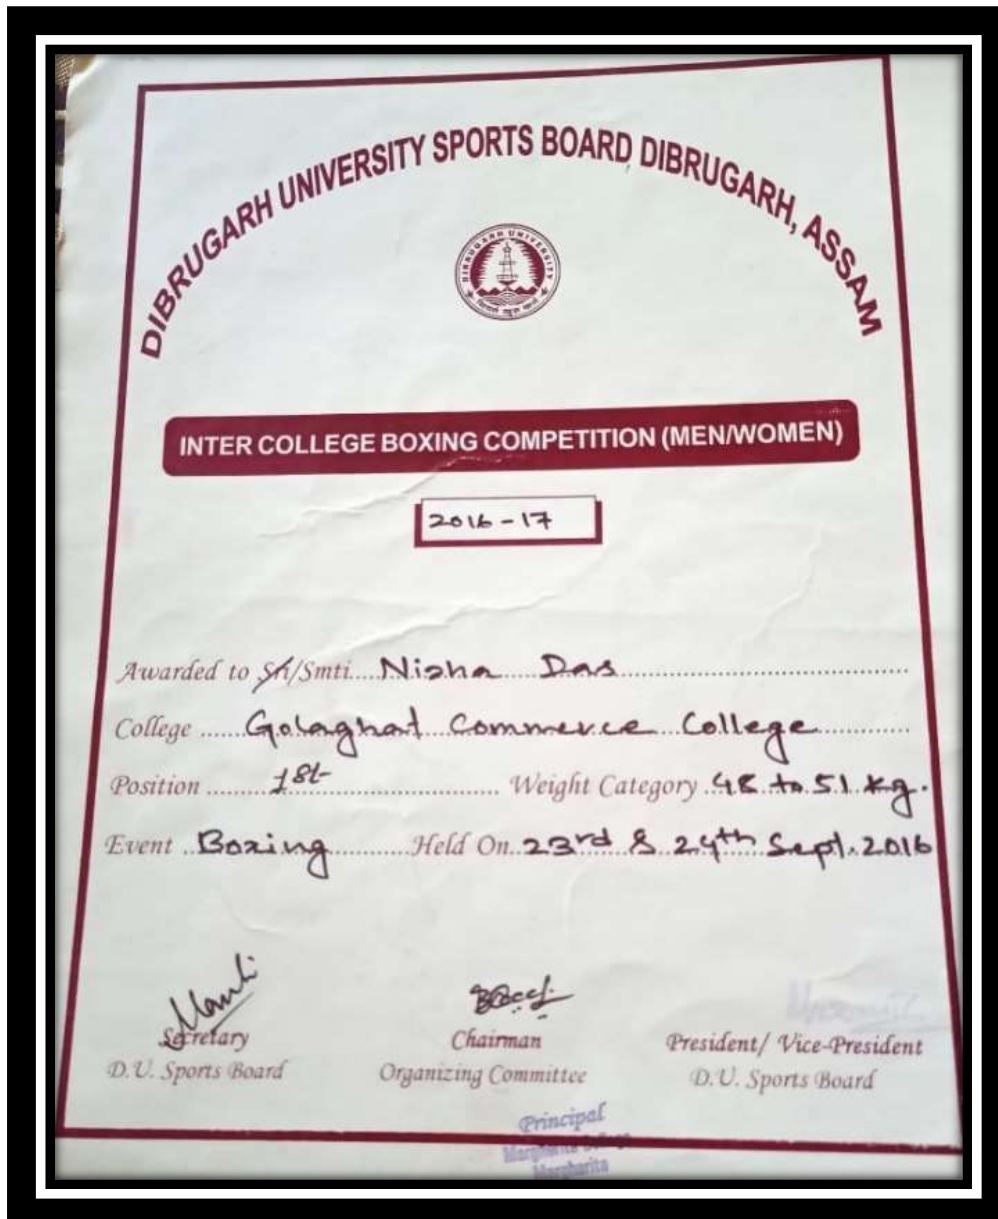 DIBRUGARH UNIVERSITY SPORTS BOARD DIBRUGARH, ASSAM
DIBRUGARH UNIVERSITY
INTER COLLEGE BOXING COMPETITION (MEN/WOMEN)
2016-17
Awarded to Sri/Smti....Nisha Das
College ......Golaghat Commerce College
Position ..........1st Weight Category ..48 to 51 kg.
Event ..Boxing..........Held On..23rd & 24th Sept. 2016
Secretary Chairman President/ Vice-President
D.U. Sports Board Organizing Committee D.U. Sports Board
Principal
Margherita College
Margherita